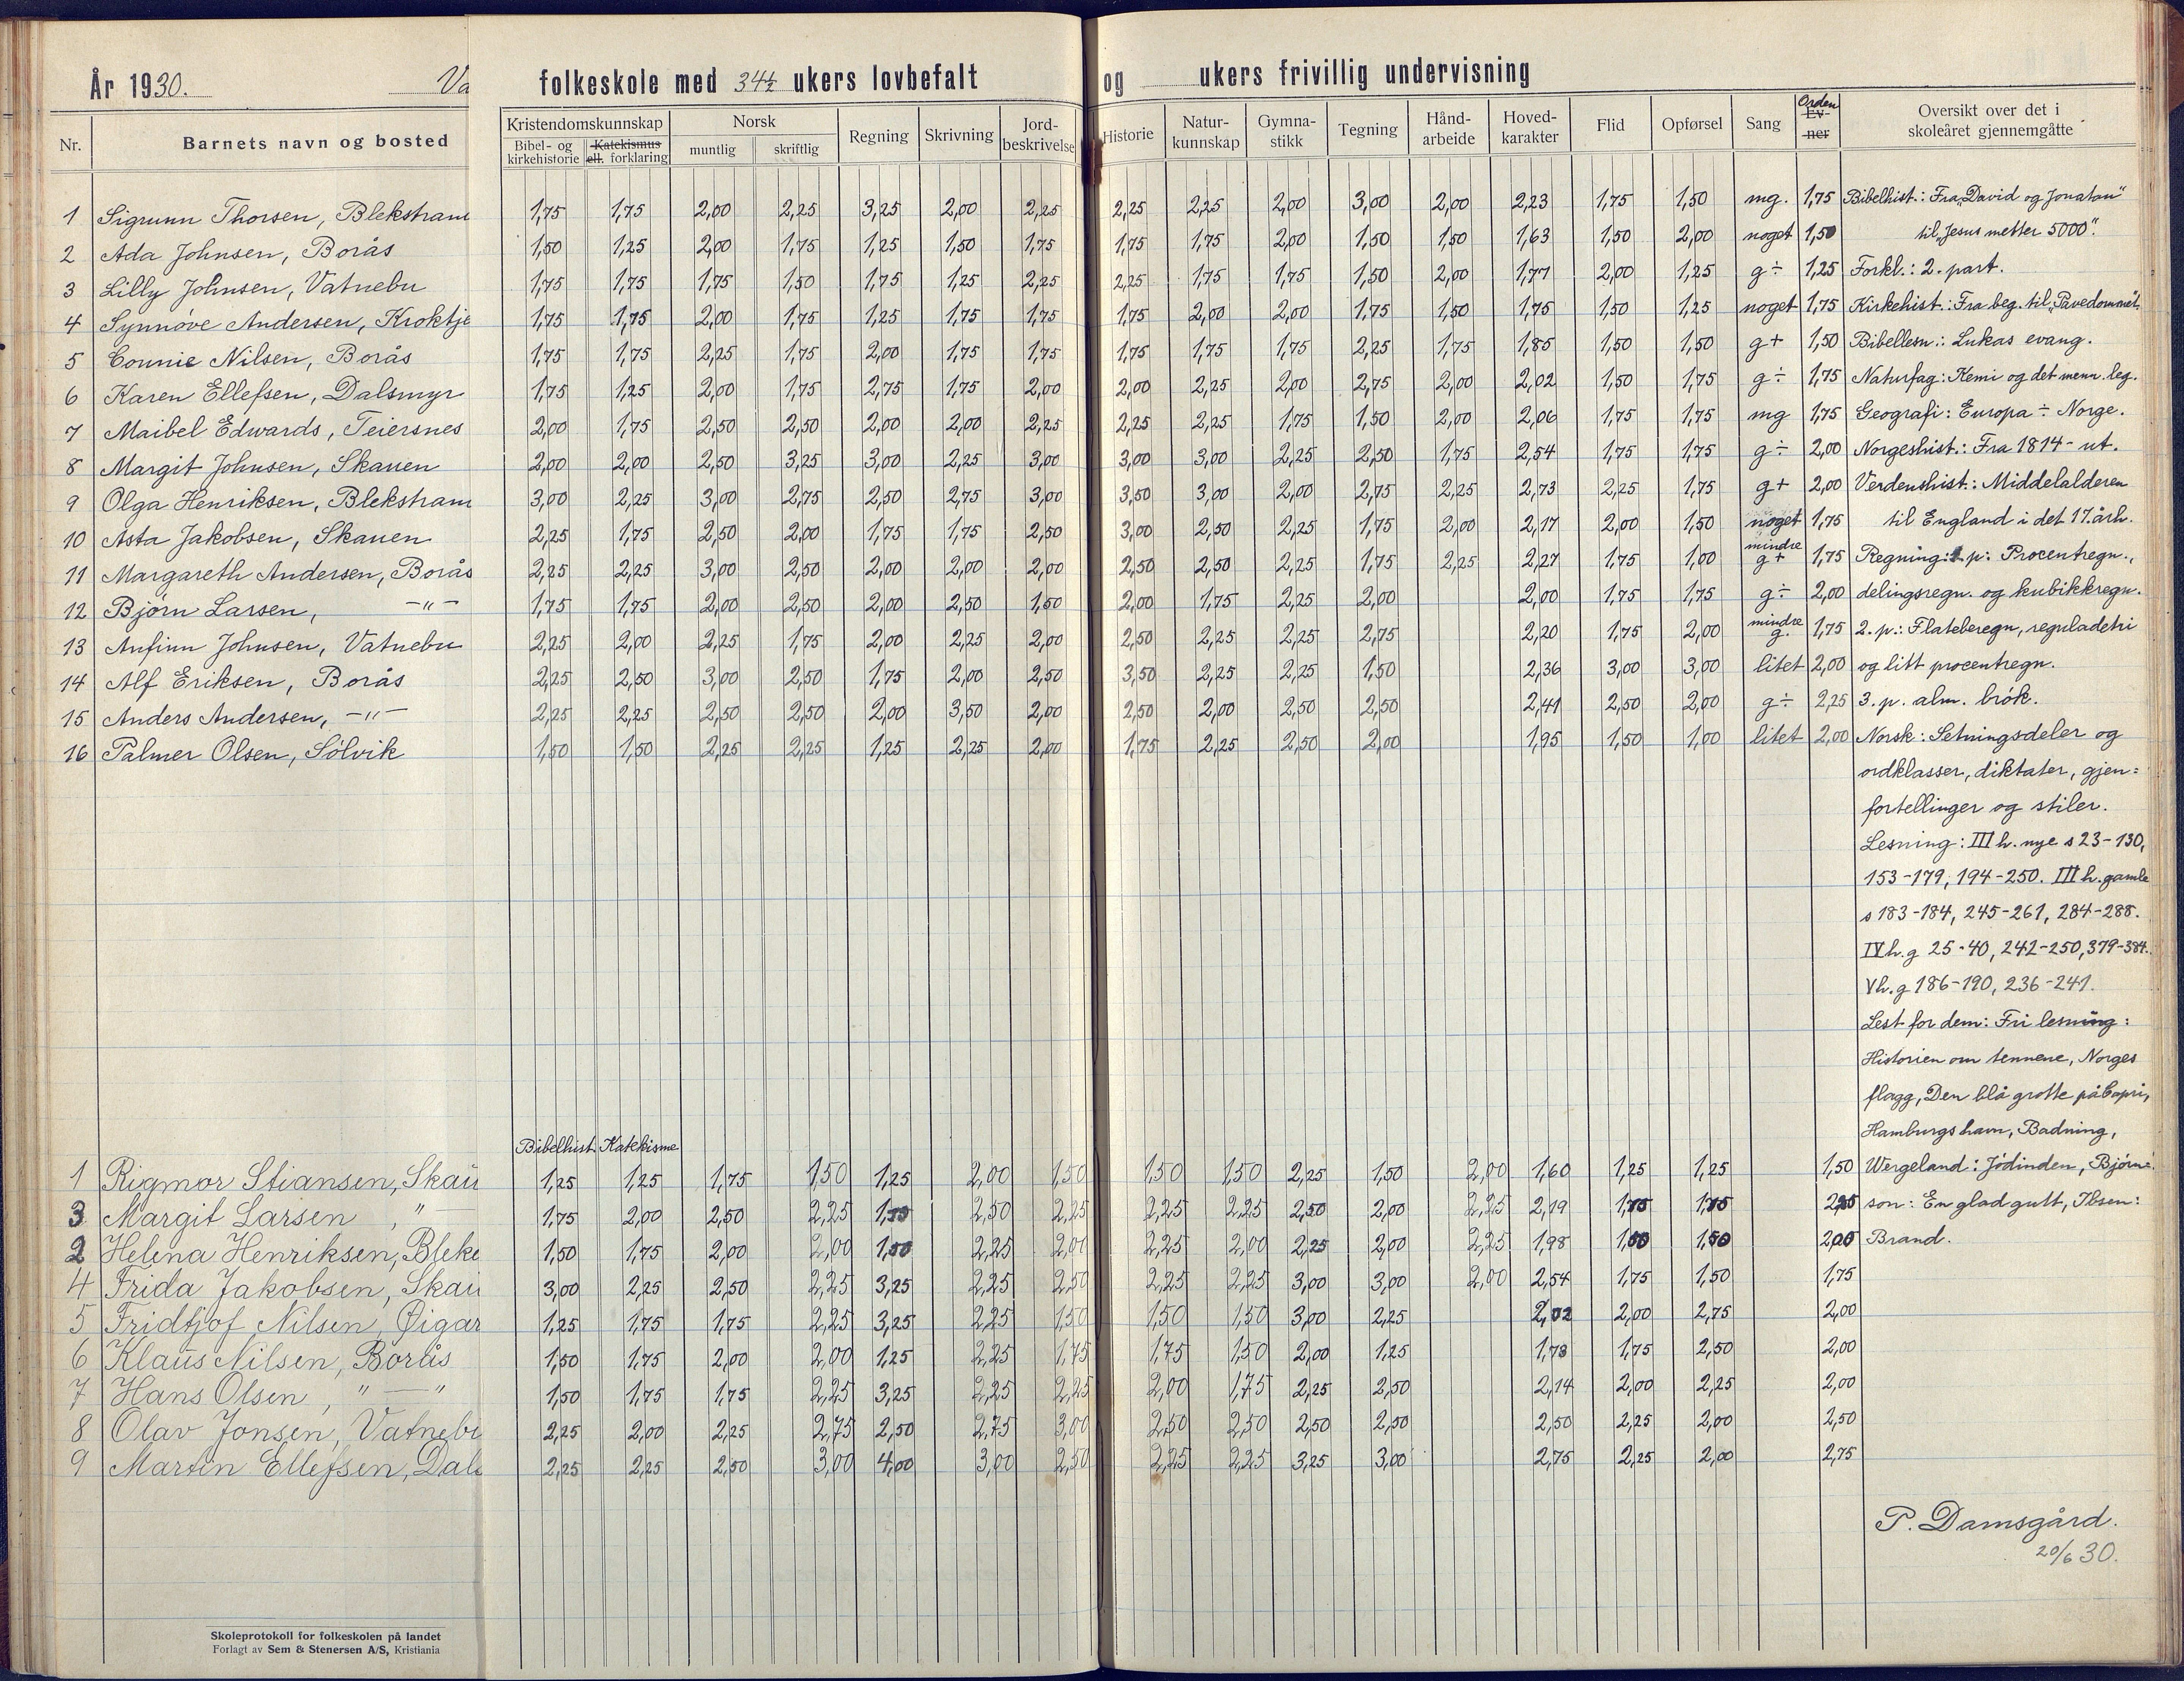 År 1930. Va folkeskole med 34½ ukers lovbefalt og ukers frivillig undervisning
Nr. Barnets navn og bosted Kristendomskunnskap Bibel- og kirkehistorie Katekismus ell. forklaring Norsk muntlig skriftlig Regning Skrivning Jord-beskrivelse Historie Natur-kunnskap Gymna-stikk Tegning Hånd-arbeide Hoved-karakter Flid Opførsel Sang Orden Ev-ner Oversikt over det i skoleåret gjennemgåtte
1 Sigrunn Thorsen, Blekstran 1,75 1,75 2,00 2,25 3,25 2,00 2,25 2,25 2,25 2,00 3,00 2,00 2,23 1,75 1,50 mg. 1,75 Bibelhist.: Fra „David og Jonatan"
2 Ada Johnsen, Borås 1,50 1,25 2,00 1,75 1,25 1,50 1,75 1,75 1,75 2,00 1,50 1,50 1,63 1,50 2,00 noget 1,50 til „Jesus metter 5000".
3 Lilly Johnsen, Vatnebu 1,75 1,75 1,75 1,50 1,75 1,25 2,25 2,25 1,75 1,75 1,50 2,00 1,77 2,00 1,25 g÷ 1,25 Forkl.: 2. part.
4 Synnøve Andersen, Kroktje 1,75 1,75 2,00 1,75 1,25 1,75 1,75 1,75 2,00 2,00 1,75 1,50 1,75 1,50 1,25 noget 1,75 Kirkehist.: Fra beg. til „Pavedømmet„
5 Connie Nilsen, Borås 1,75 1,75 2,25 1,75 2,00 1,75 1,75 1,75 1,75 1,75 2,25 1,75 1,85 1,50 1,50 g+ 1,50 Bibellesn.: Lukas evang.
6 Karen Ellefsen, Dalsmyr 1,75 1,25 2,00 1,75 2,75 1,75 2,00 2,00 2,25 2,00 2,75 2,00 2,02 1,50 1,75 g÷ 1,75 Naturfag: Kemi og det menn. leg.
7 Maibel Edwards, Teiersnes 2,00 1,75 2,50 2,50 2,00 2,00 2,25 2,25 2,25 1,75 1,50 2,00 2,06 1,75 1,75 mg 1,75 Geografi: Europa ÷ Norge.
8 Margit Johnsen, Skauen 2,00 2,00 2,50 3,25 3,00 2,25 3,00 3,00 3,00 2,25 2,50 1,75 2,54 1,75 1,75 g÷ 2,00 Norgeshist.: Fra 1814 - ut.
9 Olga Henriksen, Blekstran 3,00 2,25 3,00 2,75 2,50 2,75 3,00 3,50 3,00 2,00 2,75 2,25 2,73 2,25 1,75 g+ 2,00 Verdenshist.: Middelalderen
10 Asta Jakobsen, Skauen 2,25 1,75 2,50 2,00 1,75 1,75 2,50 3,00 2,50 2,25 1,75 2,00 2,17 2,00 1,50 noget 1,75 til England i det 17. årh.
11 Margareth Andersen, Borås 2,25 2,25 3,00 2,50 2,00 2,00 2,00 2,50 2,50 2,25 1,75 2,25 2,27 1,75 1,00 mindre g+ 1,75 Regning: 1 p: Procentregn.,
12 Bjørn Larsen, -"- 1,75 1,75 2,00 2,50 2,00 2,50 1,50 2,00 1,75 2,25 2,00 2,00 1,75 1,75 g÷ 2,00 delingsregn. og kubikkregn.
13 Anfinn Johnsen, Vatnebu 2,25 2,00 2,25 1,75 2,00 2,25 2,00 2,50 2,25 2,25 2,75 2,20 1,75 2,00 mindre g. 1,75 2. p.: Flateberegn, reguladetri
14 Alf Eriksen, Borås 2,25 2,50 3,00 2,50 1,75 2,00 2,50 3,50 2,25 2,25 1,50 2,36 3,00 3,00 litet 2,00 og litt procentregn.
15 Anders Andersen, -"- 2,25 2,25 2,50 2,50 2,00 3,50 2,00 2,50 2,00 2,50 2,50 2,41 2,50 2,00 g÷ 2,25 3. p. alm. brøk.
16 Palmer Olsen, Sølvik 1,50 1,50 2,25 2,25 1,25 2,25 2,00 1,75 2,25 2,50 2,00 1,95 1,50 1,00 litet 2,00 Norsk: Setningsdeler og
ordklasser, diktater, gjen=
fortellinger og stiler.
Lesning: III h. nye s 23-130,
153-179, 194-250. III h. gamle
s 183-184, 245-261, 284-288.
IV h. g 25-40, 242-250, 379-384.
V h. g 186-190, 236-241.
Lest for dem: Fri lesning:
Historien om tennene, Norges
flagg, Den blå grotte på Capri,
Bibelhist Katekisme Hamburgs havn, Badning,
1 Rigmor Stiansen, Skau 1,25 1,25 1,75 1,50 1,25 2,00 1,50 1,50 1,50 2,25 1,50 2,00 1,60 1,25 1,25 1,50 Wergeland: Jødinden, Bjørn
3 Margit Larsen, " 1,75 2,00 2,50 2,25 2,50 2,25 2,25 2,25 2,50 2,00 2,25 2,19 1,75 1,75 son: En glad gutt, Ibsen:
2 Helena Henriksen, Bleke 1,50 1,75 2,00 2,00 1,50 2,25 2,00 2,25 2,00 2,25 2,00 2,25 1,98 1,50 2,00 Brand.
4 Frida Jakobsen, Skau 3,00 2,25 2,50 2,25 3,25 2,25 2,50 2,25 2,25 3,00 3,00 2,00 2,54 1,75 1,50 1,75
5 Fridtjof Nilsen, Øigar 1,25 1,75 1,75 2,25 3,25 2,25 1,50 1,50 1,50 3,00 2,25 2,02 2,00 2,75 2,00
6 Klaus Nilsen, Borås 1,50 1,75 2,00 2,00 1,25 2,25 1,75 1,75 1,50 2,00 1,25 1,78 1,75 2,50 2,00
7 Hans Olsen, "—" 1,50 1,75 1,75 2,25 3,25 2,25 2,25 2,00 1,75 2,25 2,50 2,14 2,00 2,25 2,00
8 Olav Jonsen, Vatnebu 2,25 2,00 2,25 2,75 2,50 2,75 3,00 2,50 2,50 2,50 2,50 2,50 2,25 2,00 2,50
9 Martin Ellefsen, Dals 2,25 2,25 2,50 3,00 4,00 3,00 2,50 2,25 2,25 3,25 3,00 2,75 2,25 2,00 2,75
P. Damsgård.
20/6 30.
Skoleprotokoll for folkeskolen på landet
Forlagt av Sem & Stenersen A/S, Kristiania